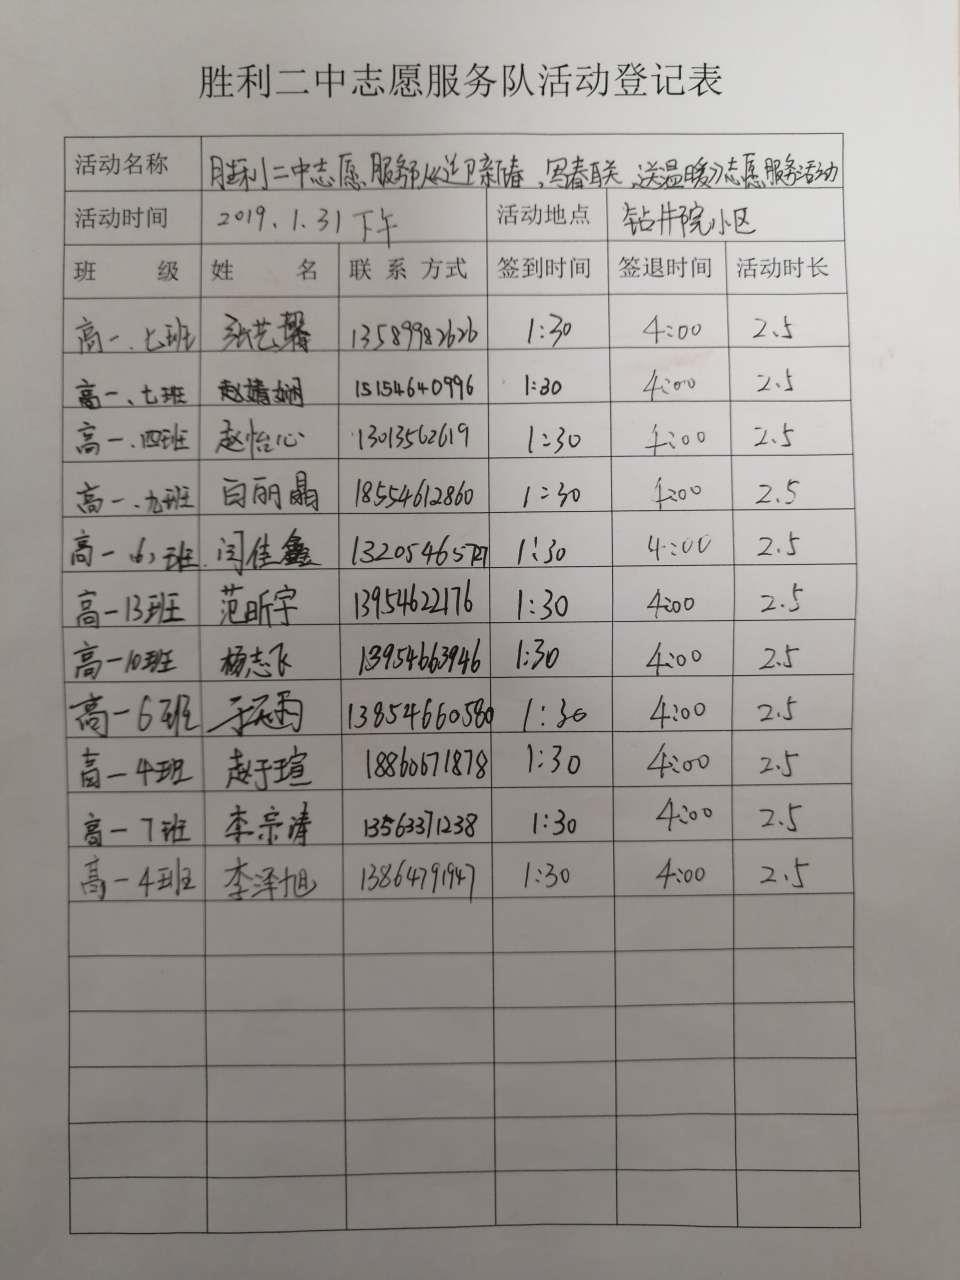 胜利二中志愿服务队活动登记表
活动名称 胜利二中志愿服务队《迎新春、写春联、送温暖》志愿服务活动
活动时间 2019.1.31下午 活动地点 钻井院小区
班 级 姓 名 联系方式 签到时间 签退时间 活动时长
高一、七班 张艺馨 13589982626 1:30 4:00 2.5
高一、七班 赵婧娴 15154640996 1:30 4:00 2.5
高一.四班 赵怡心 13013562619 1:30 4:00 2.5
高一、九班 白丽晶 18554612860 1:30 4:00 2.5
高一(6)班 闫佳鑫 1:30 4:00 2.5
高一13班 范昕宇 13954622176 1:30 4:00 2.5
高一10班 杨志飞 13954663946 1:30 4:00 2.5
高一6班 13854660580 1:30 4:00 2.5
高一4班 赵于瑄 18860671878 1:30 4:00 2.5
高一7班 李宗涛 13563371238 1:30 4:00 2.5
高一4班 李泽旭 13864791947 1:30 4:00 2.5